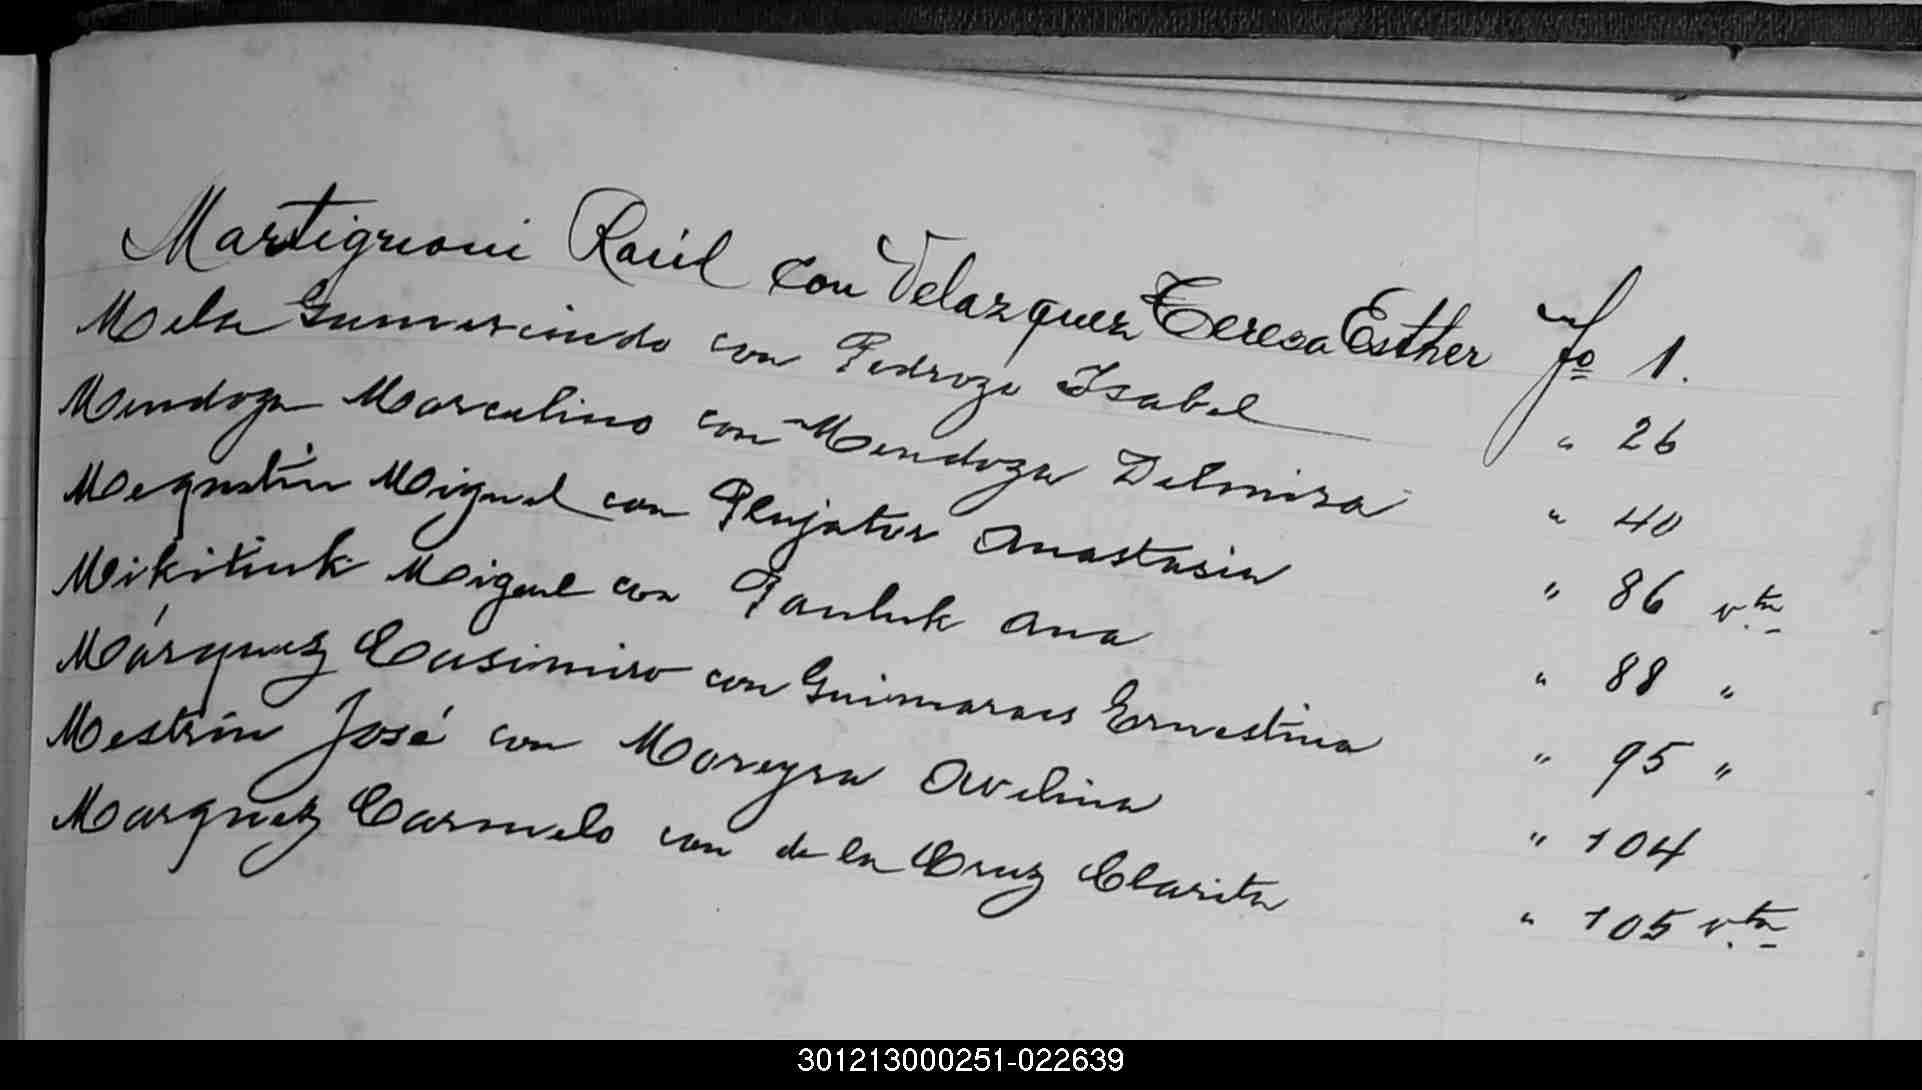 Martignoni Raúl con Velazquez Teresa Esther Fo 1.
Mela Gumercindo con Pedrozo Isabel " 26
Mendoza Marcelino con Mendoza Delmira " 40
Miguel con Anastasia " 86 vta
Mikitiuk Miguel con Pauluk Ana " 88 "
Márquez Casimiro con Guimaraes Ernestina " 95 "
Mestrin José con Moreyra Avelina " 104
Marquez Carmelo con de la Cruz Clarita " 105 vta
301213000251-022639